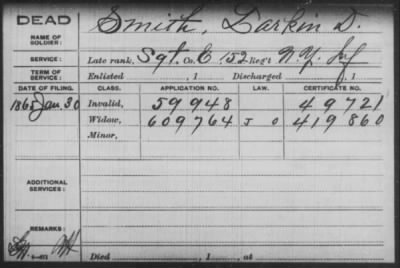 DEAD
NAME OF SOLDIER: Smith, Larkin D.
SERVICE: Late rank, Sgt. Co. C 152 Reg't N.Y. Inf
TERM OF SERVICE: Enlisted , 1 Discharged , 1
DATE OF FILING. CLASS. APPLICATION NO. LAW. CERTIFICATE NO.
1865 Jan. 30 Invalid, 59948 49721
Widow, 609764 J O 419860
Minor,
ADDITIONAL SERVICES:
REMARKS:
Died , 1 , at